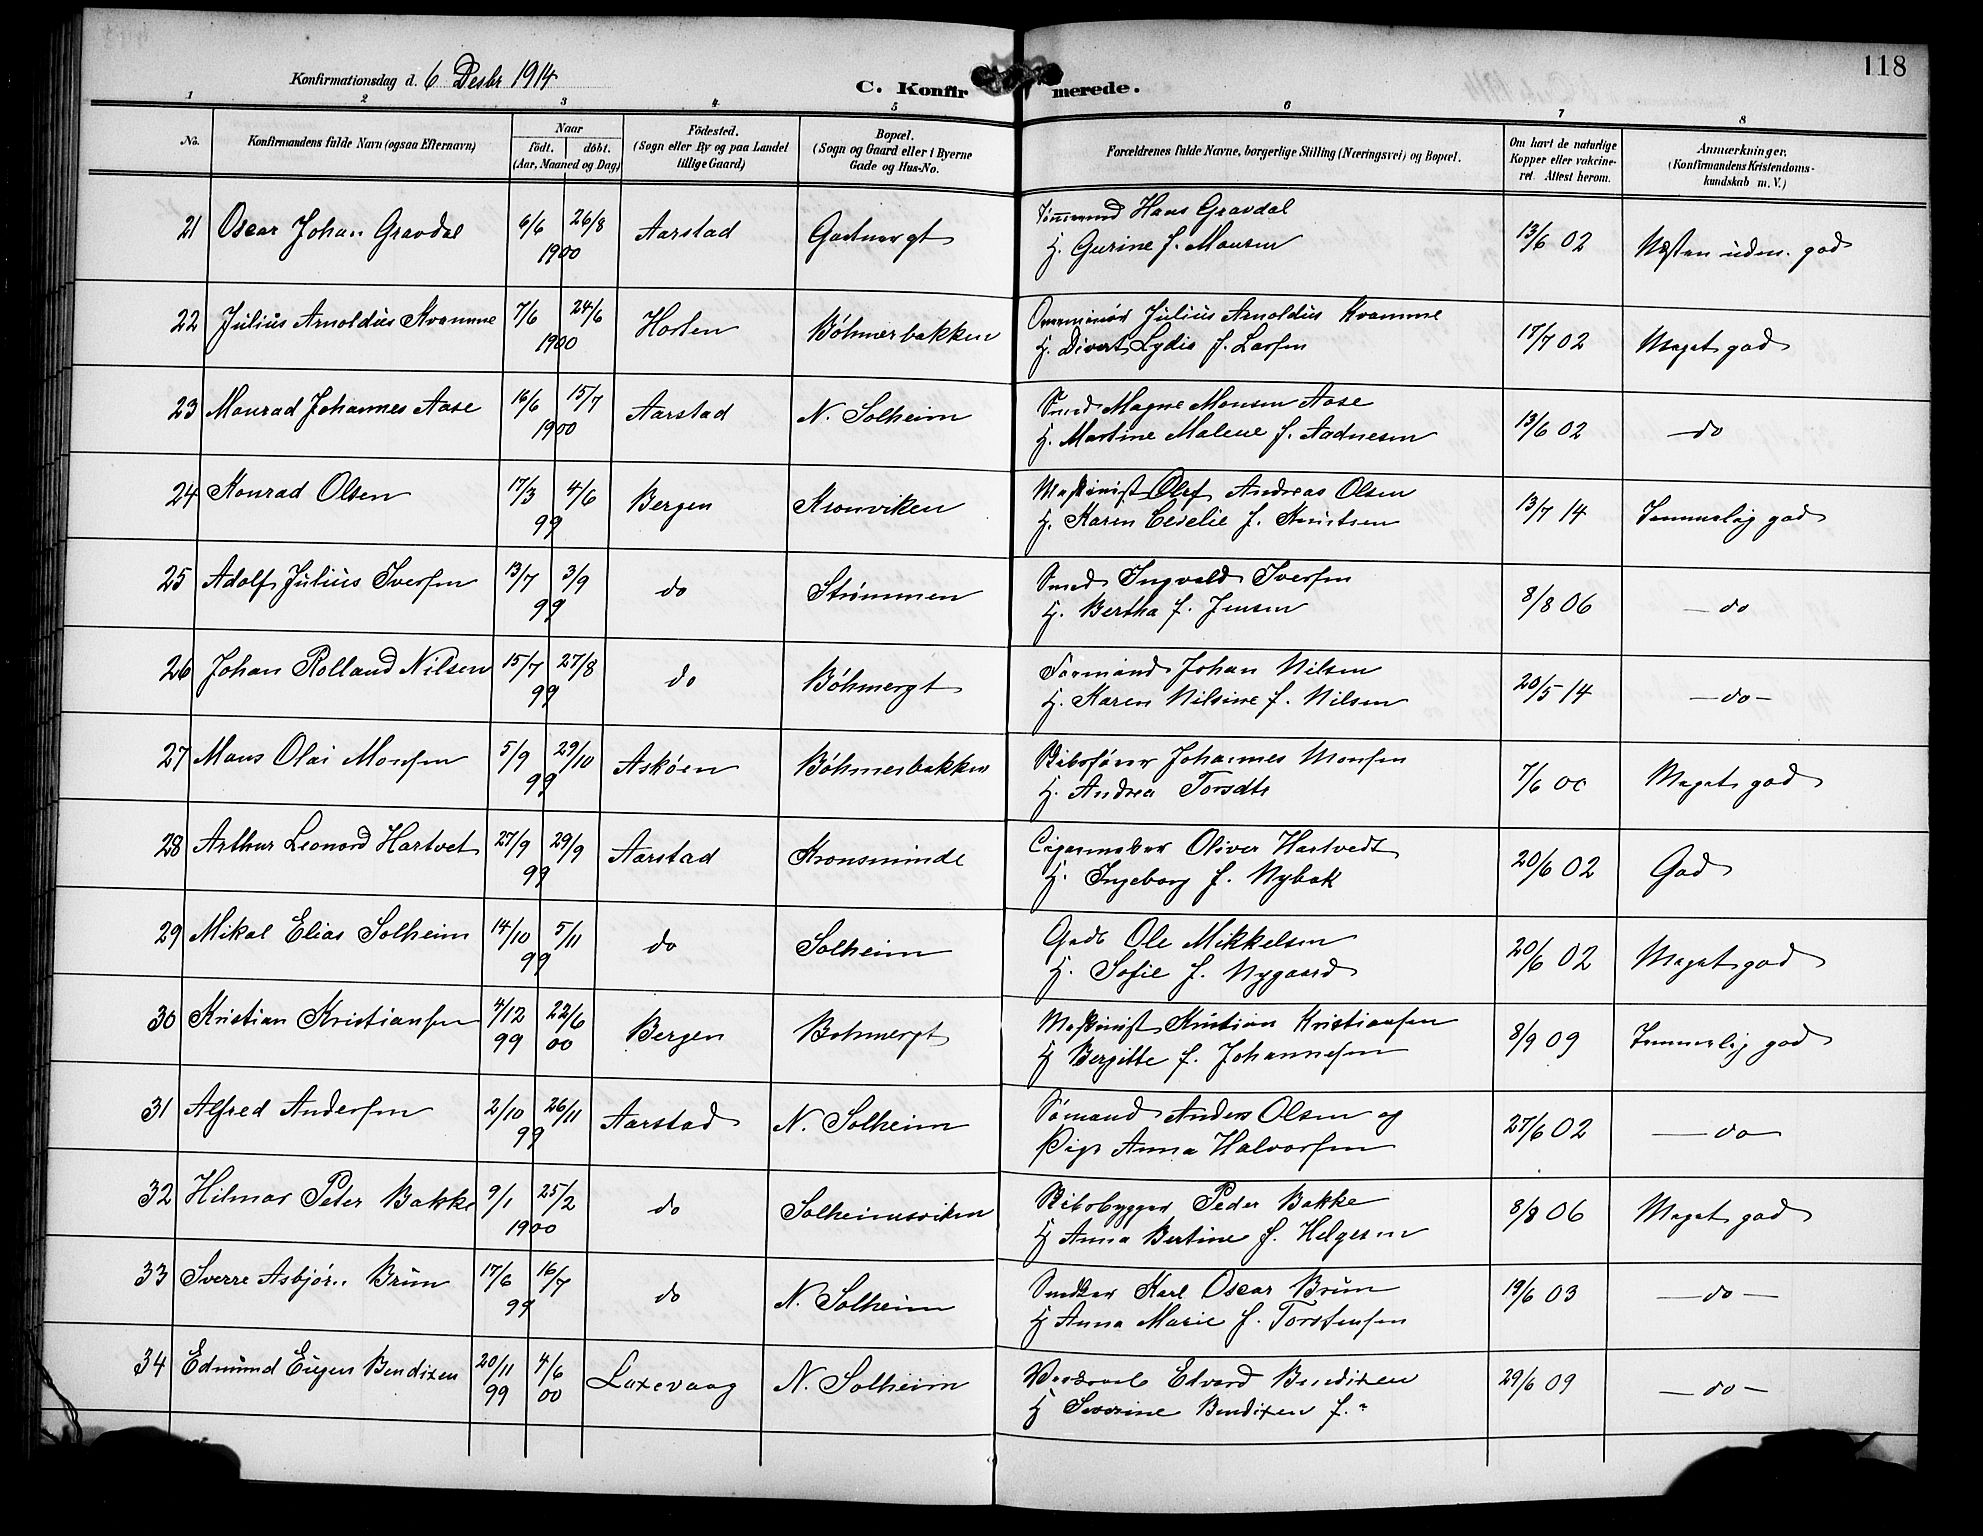 118
Konfirmationsdag d. 6 Desbr 1914
C. Konfirmerede.
1 2 3 4 5 6 7 8
No. Konfirmandens fulde Navn (ogsaa Efternavn) Naar født. døbt. (Aar, Maaned og Dag) Födested. (Sogn eller By og paa Landet tillige Gaard) Bopæl. (Sogn og Gaard eller i Byerne Gade og Hus-No. Forældrenes fulde Navne, borgerlige Stilling (Næringsvei) og Bopæl. Om havt de naturlige Kopper eller vakcineret. Attest herom. Anmærkninger. (Konfirmandens Kristendomskundskab m. V.)
21 Oscar Johan Gravdal 6/6 26/8 1900 Aarstad Gartnergt Hans Gravdal 13/6 02 Næsten udm. god
H. Gurine f. Monsen
22 Julius Arnoldus Kvamme 7/6 24/6 1900 Horten Bøhmerbakken Julius Arnoldus Kvamme 17/7 02 Meget god
H. Divert Lydia f. Larsen
23 Monrad Johannes Aase 16/6 15/7 1900 Aarstad N. Solheim Smed Magne Monsen Aase 13/6 02 do
H. Martine Malene f. Aadnesen
24 Konrad Olsen 17/3 4/6 99 Bergen Kronviken Maskinist Olaf Andreas Olsen 13/7 14 Temmelig god
H. Karen Cecelie f. Knutsen
25 Adolf Julius Iversen 13/7 3/9 99 do Strømmen Smed Ingvald Iversen 8/8 06 — do
H. Bertha f. Jensen
26 Johan Rolland Nilsen 15/7 27/8 99 do Bøhmergt Formand Johan Nilsen 20/5 14 — do —
H. Karen Nilsine f. Nilsen
27 Mons Olai Monsen 5/9 29/10 99 Askøen Bøhmerbakken Skibsfører Johannes Monsen 7/6 00 Meget god
H. Andrea Torsdtr
28 Arthur Leonard Hartvet 27/9 29/9 99 Aarstad Kronsminde Cigarmaker Oliver Hartvedt 20/6 02 God
H. Ingeborg f. Nybak
29 Mikal Elias Solheim 14/10 5/11 99 do Solheim Gadb Ole Mikkelsen 20/6 02 Meget god
H. Sofie f. Nygaard
30 Kristian Kristiansen 4/12 99 22/6 00 Bergen Bohmergt Maskinist Kristian Kristiansen 8/9 09 Temmelig god
H Bergitte f. Johannesen
31 Alfred Andersen 2/10 26/11 99 Aarstad N. Solheim Sømand Anders Olsen og 27/6 02 — do
Pige Anna Halvorsen
32 Hilmar Peter Bakke 9/1 25/2 1900 do Solheimsviken Skibsbygger Peder Bakke 8/8 06 Meget god
H Anna Bertine f. Helgesen
33 Sverre Asbjørn Brun 17/6 16/7 99 do N. Solheim Karl Oscar Brun 19/6 03 — do —
H Anna Marie f. Torstensen
34 Edmund Eugen Bendixen 20/11 99 4/6 00 Laxevaag N. Solheim Edvard Bendixen 29/6 09 — do —
H Severine Bendixen f. "